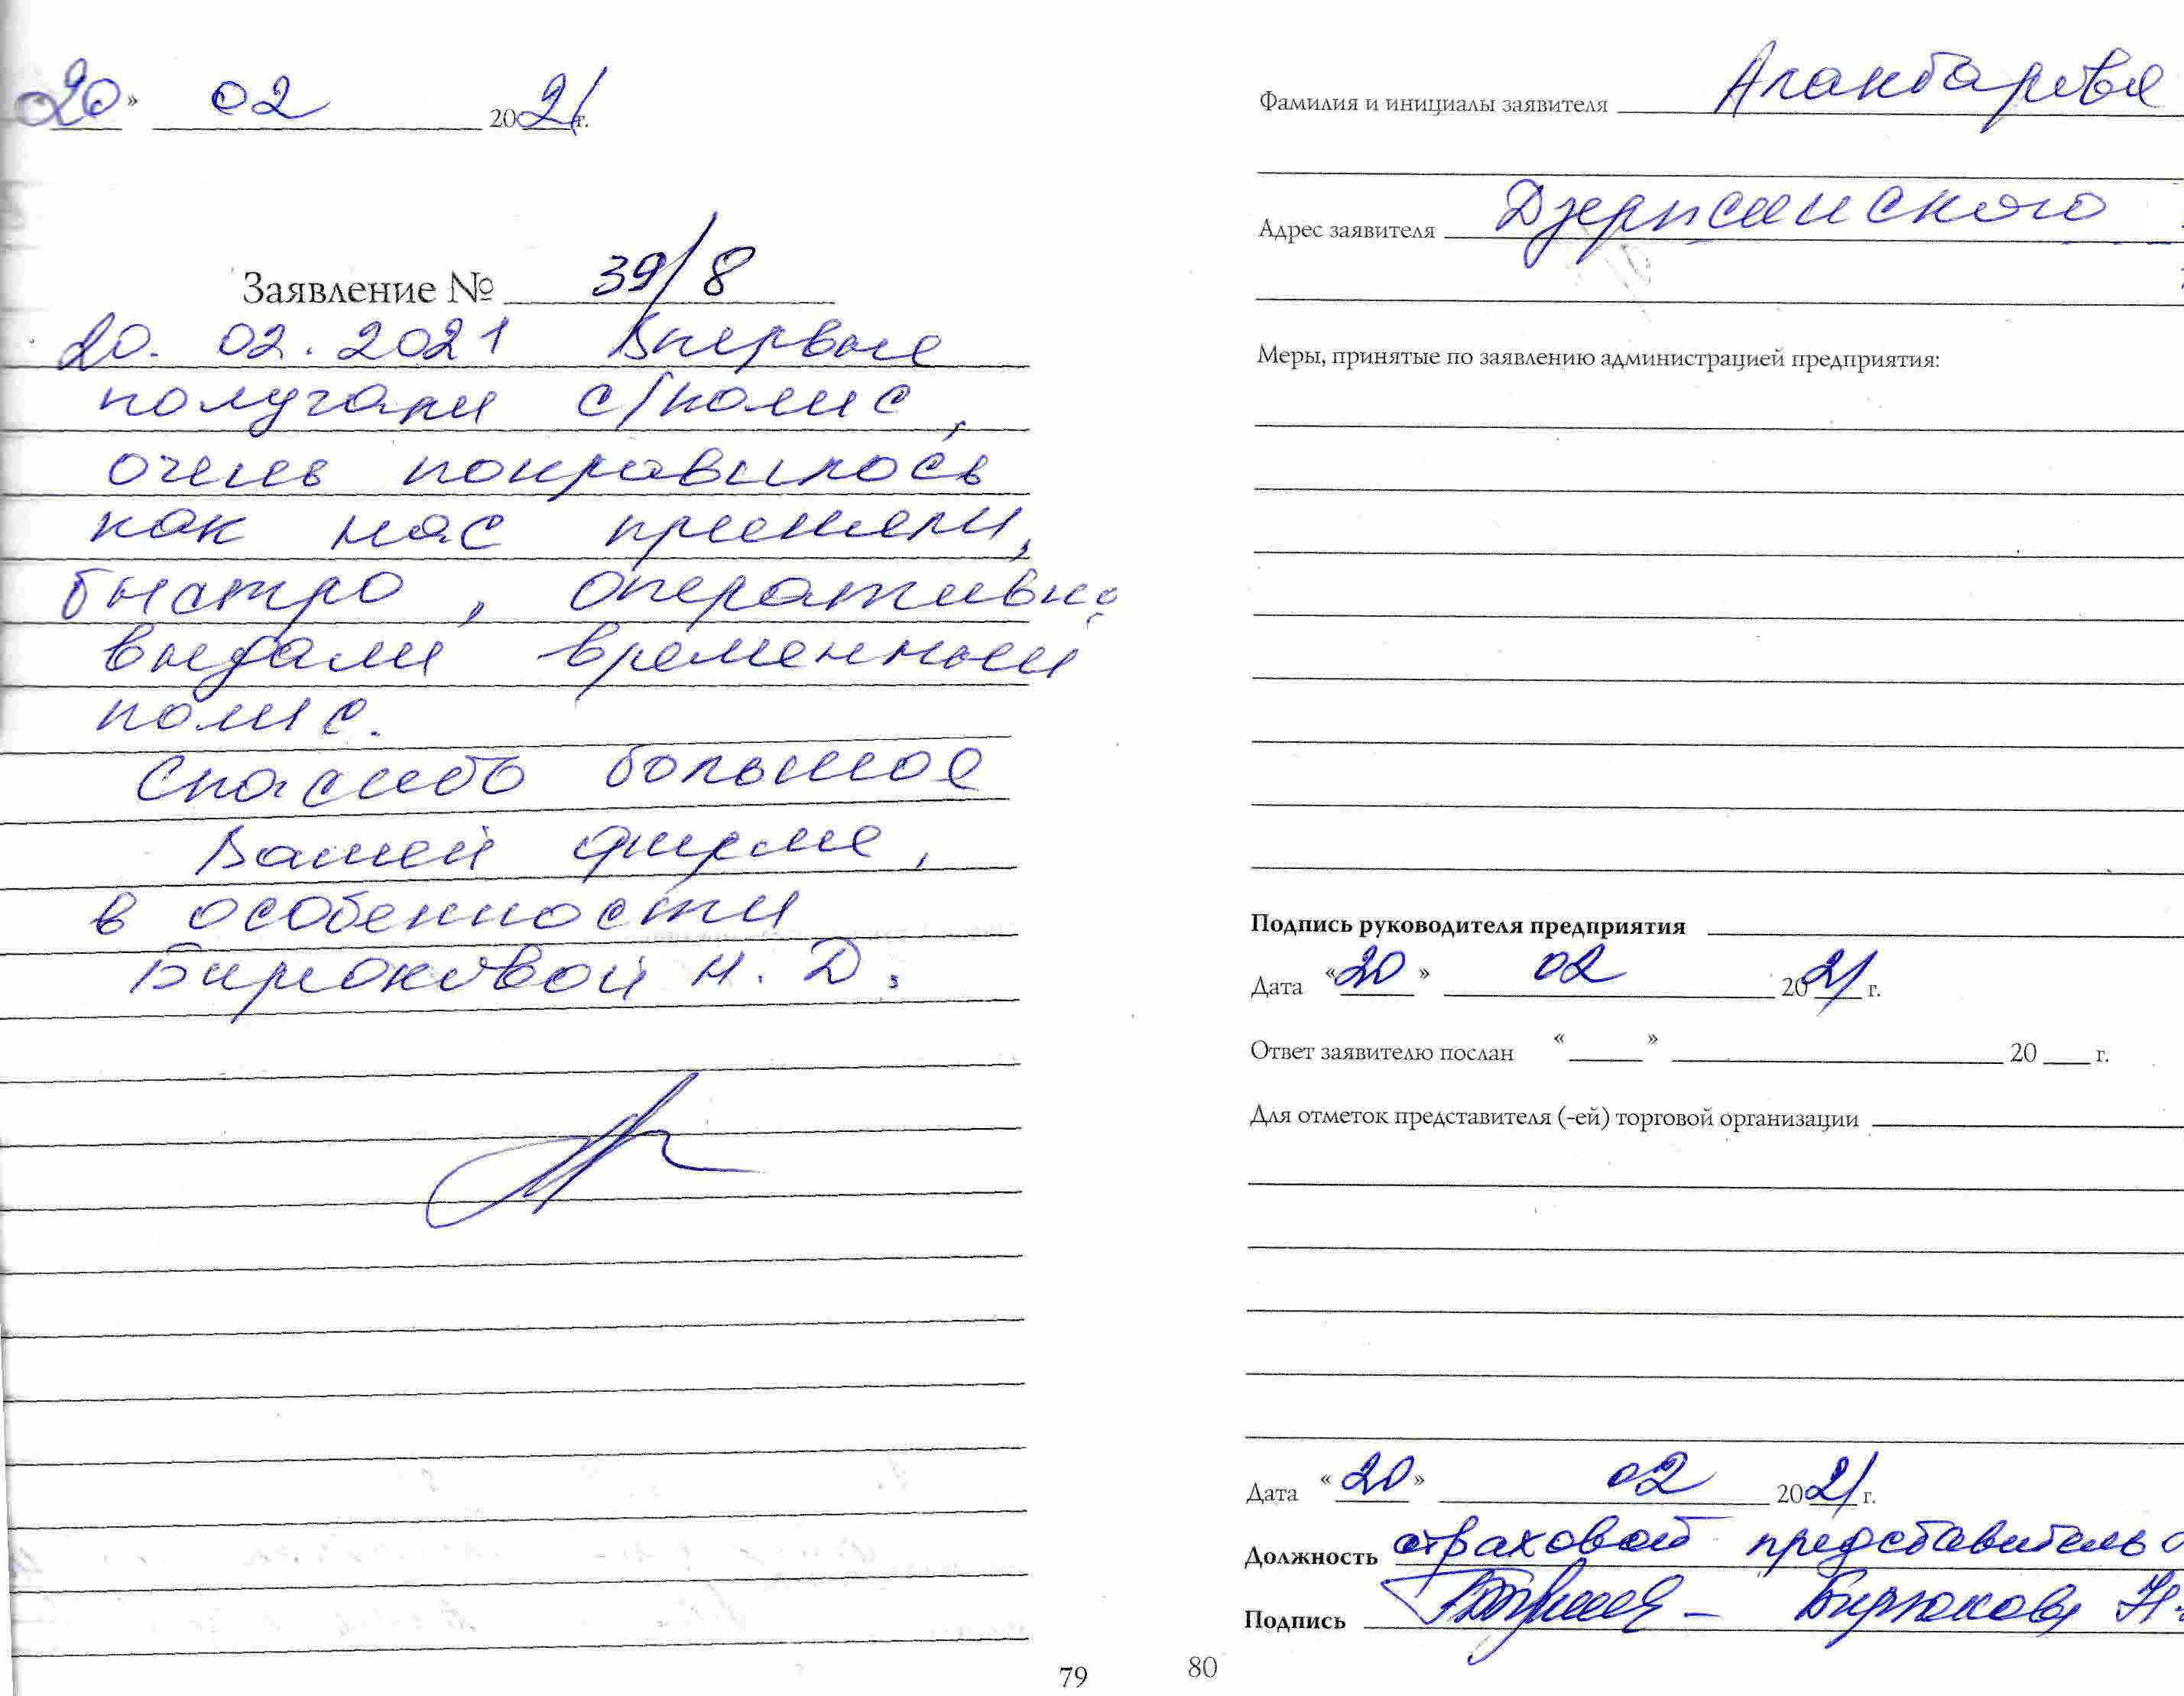 20» 02 2021 г.
Заявление № 39/8
20.02.2021 Впервые
получали с/полис,
очень понравилось
как нас приняли,
быстро, оперативно
выдали временный
полис.
Спасибо большое
Вашей фирме,
в особенности
Бирюковой Н. Д.
79
Фамилия и инициалы заявителя Алакбарова
Адрес заявителя Дзержинского
Меры, принятые по заявлению администрацией предприятия:
Подпись руководителя предприятия
Дата «20» 02 2021 г.
Ответ заявителю послан « » 20 г.
Для отметок представителя (-ей) торговой организации
Дата «20» 02 2021 г.
Должность страховой представитель
Подпись – Бирюкова Н.
80